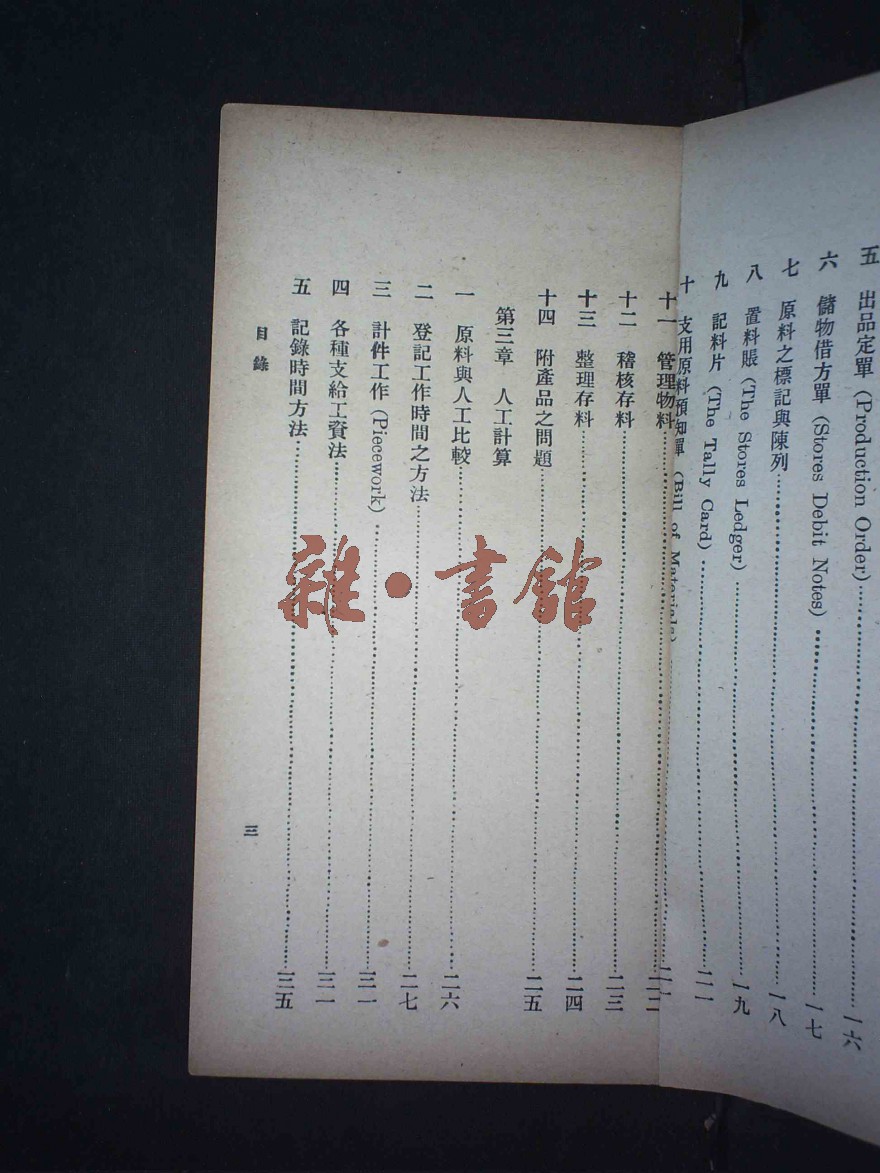 五　出品定單 (Production Order)……一六
六　儲物借方單 (Stores Debit Notes)……一七
七　原料之標記與陳列……一八
八　置料賬 (The Stores Ledger)……一九
九　記料片 (The Tally Card)……二一
十　支用原料預知單 (Bill of Materials)……二一
十一　管理物料……二二
十二　稽核存料……二三
十三　整理存料……二四
十四　附產品之問題……二五
第三章　人工計算
一　原料與人工比較……二六
二　登記工作時間之方法……二七
三　計件工作 (Piecework)……三一
四　各種支給工資法……三一
五　記錄時間方法……三五
目錄
三
雜·書館